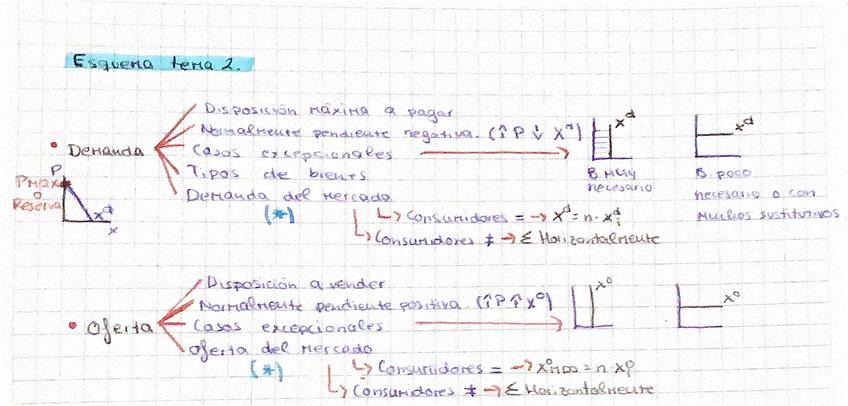 Esquema tema 2.
Disposición máxima a pagar
Normalmente pendiente negativa. (↑P ↓ Xᵈ)
• Demanda
Casos excepcionales
Tipos de bienes
Demanda del mercado
P
Pmax
o
Reserva
xᵈ
x
xᵈ
B. muy
necesario
xᵈ
B. poco
necesario o con
muchos sustitutivos
(*)
↳ Consumidores = → xᵈ = n · xᵈᵢ
↳ Consumidores ≠ → Σ Horizontalmente
Disposición a vender
Normalmente pendiente positiva (↑P ↑ x⁰)
• Oferta
Casos excepcionales
Oferta del mercado
x⁰
x⁰
(*)
↳ Consumidores = → x⁰
↳ Consumidores ≠ → Σ Horizontalmente